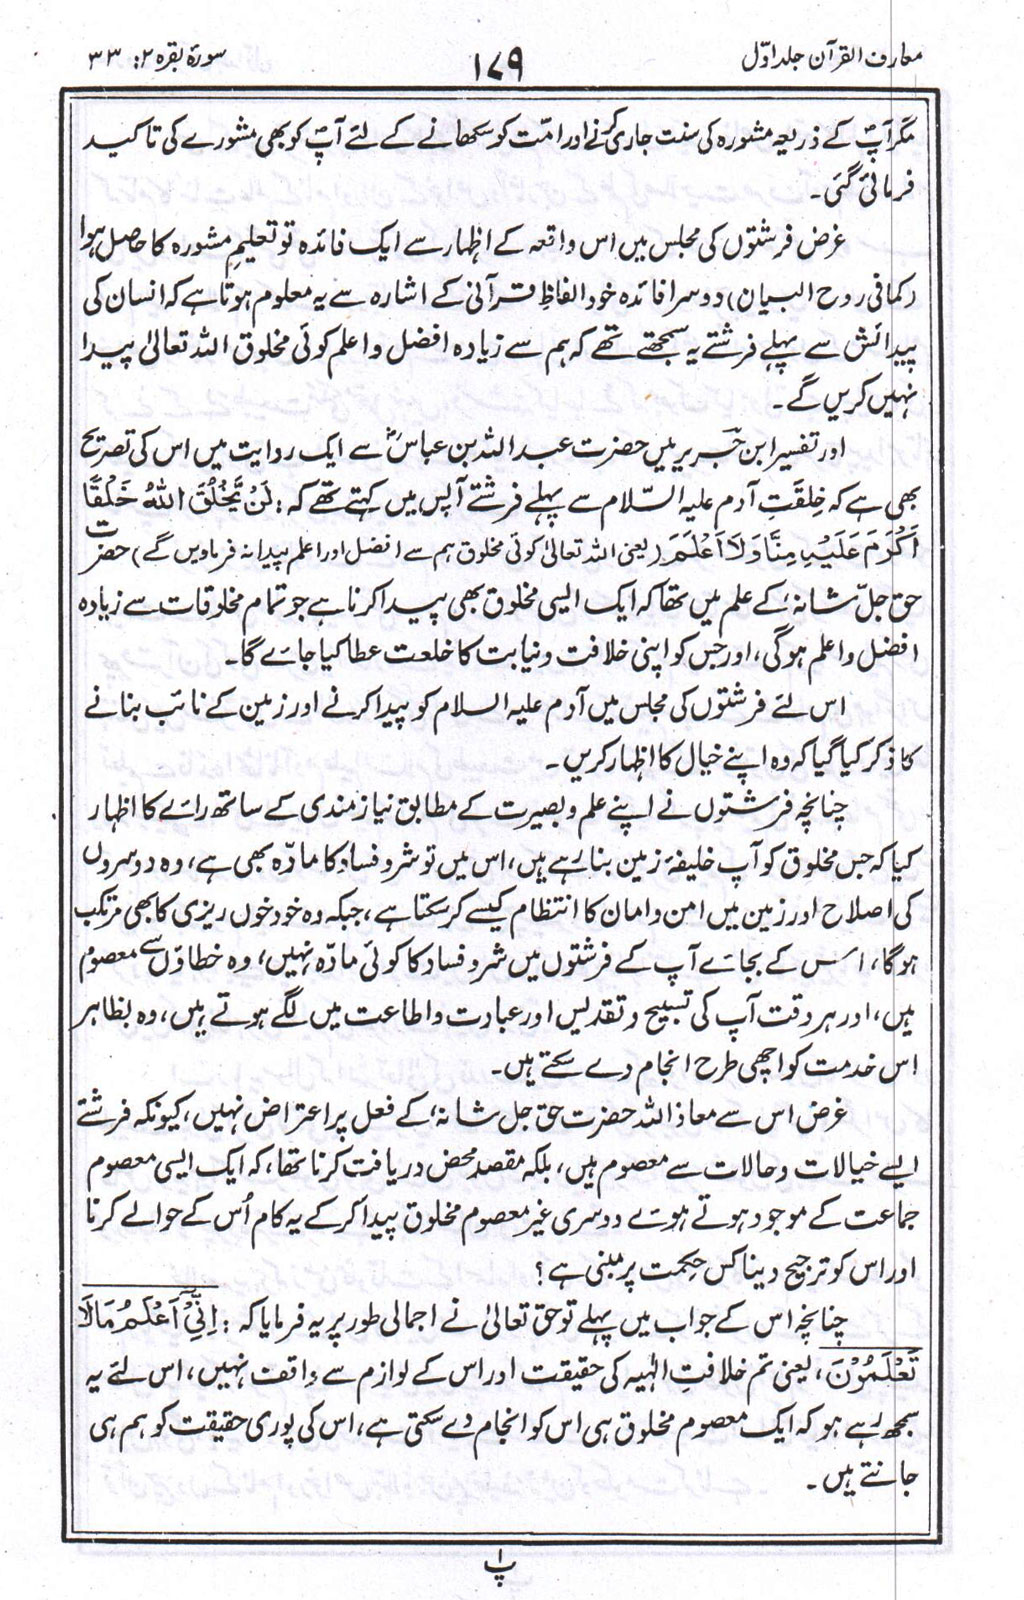 معارف القرآن جلد اوّل
۱۷۹
سورۂ بقرہ ۲: ۳۳
مگر آپؐ کے ذریعہ مشورہ کی سنت جاری کرنے اور امّت کو سکھانے کے لئے آپؐ کو بھی مشورے کی تاکید
فرمائی گئی۔
غرض فرشتوں کی مجلس میں اس واقعہ کے اظہار سے ایک فائدہ تو تعلیمِ مشورہ کا حاصل ہوا
(کما فی روح البیان) دوسرا فائدہ خود الفاظِ قرآنی کے اشارہ سے یہ معلوم ہوتا ہے کہ انسان کی
پیدائش سے پہلے فرشتے یہ سمجھتے تھے کہ ہم سے زیادہ افضل و اعلم کوئی مخلوق اللہ تعالیٰ پیدا
نہیں کریں گے۔
اور تفسیر ابن جریر میں حضرت عبداللہ بن عباسؓ سے ایک روایت میں اس کی تصریح
بھی ہے کہ خِلقتِ آدم علیہ السّلام سے پہلے فرشتے آپس میں کہتے تھے کہ: لَنْ يَّخْلُقَ اللهُ خَلْقًا
اَكْرَمَ عَلَيْهِ مِنَّا وَلَا اَعْلَمَ (یعنی اللہ تعالیٰ کوئی مخلوق ہم سے افضل اور اعلم پیدا نہ فرماویں گے) حضرت
حق جلّ شانہٗ کے علم میں تھا کہ ایک ایسی مخلوق بھی پیدا کرنا ہے جو تمام مخلوقات سے زیادہ
افضل و اعلم ہوگی، اور جس کو اپنی خلافت و نیابت کا خلعت عطا کیا جائے گا۔
اس لئے فرشتوں کی مجلس میں آدم علیہ السلام کو پیدا کرنے اور زمین کے نائب بنانے
کا ذکر کیا گیا کہ وہ اپنے خیال کا اظہار کریں۔
چنانچہ فرشتوں نے اپنے علم و بصیرت کے مطابق نیازمندی کے ساتھ رائے کا اظہار
کیا کہ جس مخلوق کو آپ خلیفۂ زمین بنا رہے ہیں، اس میں تو شر و فساد کا مادّہ بھی ہے، وہ دوسروں
کی اصلاح اور زمین میں امن و امان کا انتظام کیسے کر سکتا ہے، جبکہ وہ خود خوں ریزی کا بھی مرتکب
ہوگا، اس کے بجائے آپ کے فرشتوں میں شر و فساد کا کوئی مادّہ نہیں، وہ خطاؤں سے معصوم
ہیں، اور ہر وقت آپ کی تسبیح و تقدیس اور عبادت و اطاعت میں لگے ہوتے ہیں، وہ بظاہر
اس خدمت کو اچھی طرح انجام دے سکتے ہیں۔
غرض اس سے معاذ اللہ حضرت حق جل شانہٗ کے فعل پر اعتراض نہیں، کیونکہ فرشتے
ایسے خیالات و حالات سے معصوم ہیں، بلکہ مقصد محض دریافت کرنا تھا، کہ ایک ایسی معصوم
جماعت کے موجود ہوتے ہوئے دوسری غیر معصوم مخلوق پیدا کر کے یہ کام اُس کے حوالے کرنا
اور اس کو ترجیح دینا کس حِکمت پر مبنی ہے؟
چنانچہ اس کے جواب میں پہلے تو حق تعالیٰ نے اجمالی طور پر یہ فرمایا کہ: اِنِّيْٓ اَعْلَمُ مَا لَا
تَعْلَمُوْنَ، یعنی تم خلافتِ الٰہیہ کی حقیقت اور اس کے لوازم سے واقف نہیں، اس لئے یہ
سمجھ رہے ہو کہ ایک معصوم مخلوق ہی اس کو انجام دے سکتی ہے، اس کی پوری حقیقت کو ہم ہی
جانتے ہیں۔
پ۱